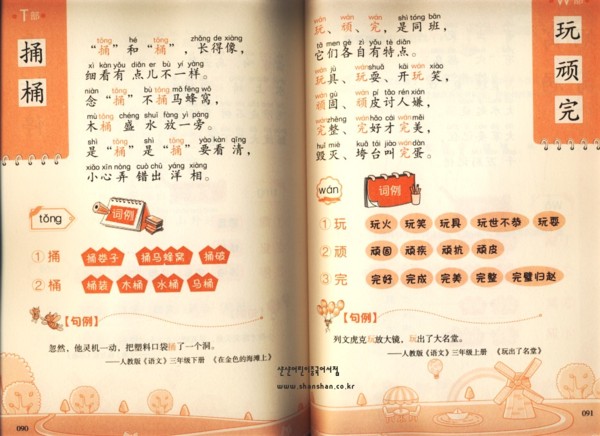 T部
捅
桶
tǒng hé tǒng zhǎng de xiàng
“捅”和“桶”，长得像，
xì kàn yǒu diǎn er bù yí yàng
细看有点儿不一样。
niàn tǒng bù tǒng mǎ fēng wō
念“捅”不捅马蜂窝，
mù tǒng chéng shuǐ fàng yì páng
木桶盛水放一旁。
shì tǒng shì tǒng yào kàn qīng
是“桶”是“捅”要看清，
xiǎo xīn nòng cuò chū yáng xiàng
小心弄错出洋相。
tǒng
词例
①捅 捅娄子 捅马蜂窝 捅破
②桶 桶装 木桶 水桶 马桶
【句例】
忽然，他灵机一动，把塑料口袋捅了一个洞。
——人教版《语文》三年级下册 《在金色的海滩上》
090
W部
玩
顽
完
wán wán wán shì tóng bān
玩、顽、完，是同班，
tā men gè zì yǒu tè diǎn
它们各自有特点。
wán jù wán shuǎ kāi wán xiào
玩具、玩耍、开玩笑，
wán gù wán pí tǎo rén xián
顽固、顽皮讨人嫌，
wán zhěng wán hǎo cái wán měi
完整、完好才完美，
huǐ miè kuǎ tái jiào wán dàn
毁灭、垮台叫完蛋。
wán
词例
①玩 玩火 玩笑 玩具 玩世不恭 玩耍
②顽 顽固 顽疾 顽抗 顽皮
③完 完好 完成 完美 完整 完璧归赵
【句例】
列文虎克玩放大镜，玩出了大名堂。
——人教版《语文》三年级上册 《玩出了名堂》
091
샨샨어린이중국어서점
www.shanshan.co.kr